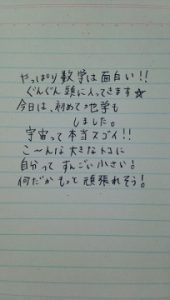 やっぱり数学は面白い!!
ぐんぐん頭に入ってきます☆
今日は、初めて地学も
しました。
宇宙って本当スゴイ!!
こ〜んな大きなトコに
自分ってすんごい小さい!
何だかもって頑張れそう!